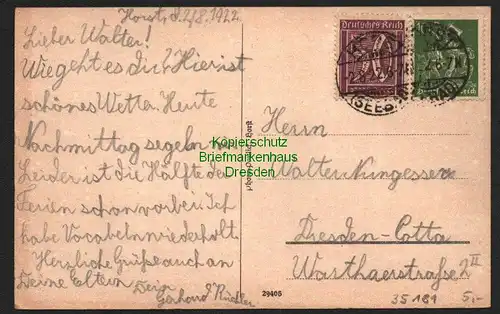 Horst, d. 2/8. 1922
Lieber Walter!
Wie geht es dir? Hier ist
schönes Wetter. Heute
Nachmittag segeln wir
Leider ist die Hälfte der
Ferien schon vorbei. Ich
habe Vokabeln wiederholt.
Herzliche Grüße auch an
Deine Eltern Dein
Gerhard
Deutsches Reich
Herrn
Walter Nungesser
Dresden-Cotta
Warthaerstraße 2 II
29405
35181
5,-
Kopierschutz
Briefmarkenhaus
Dresden